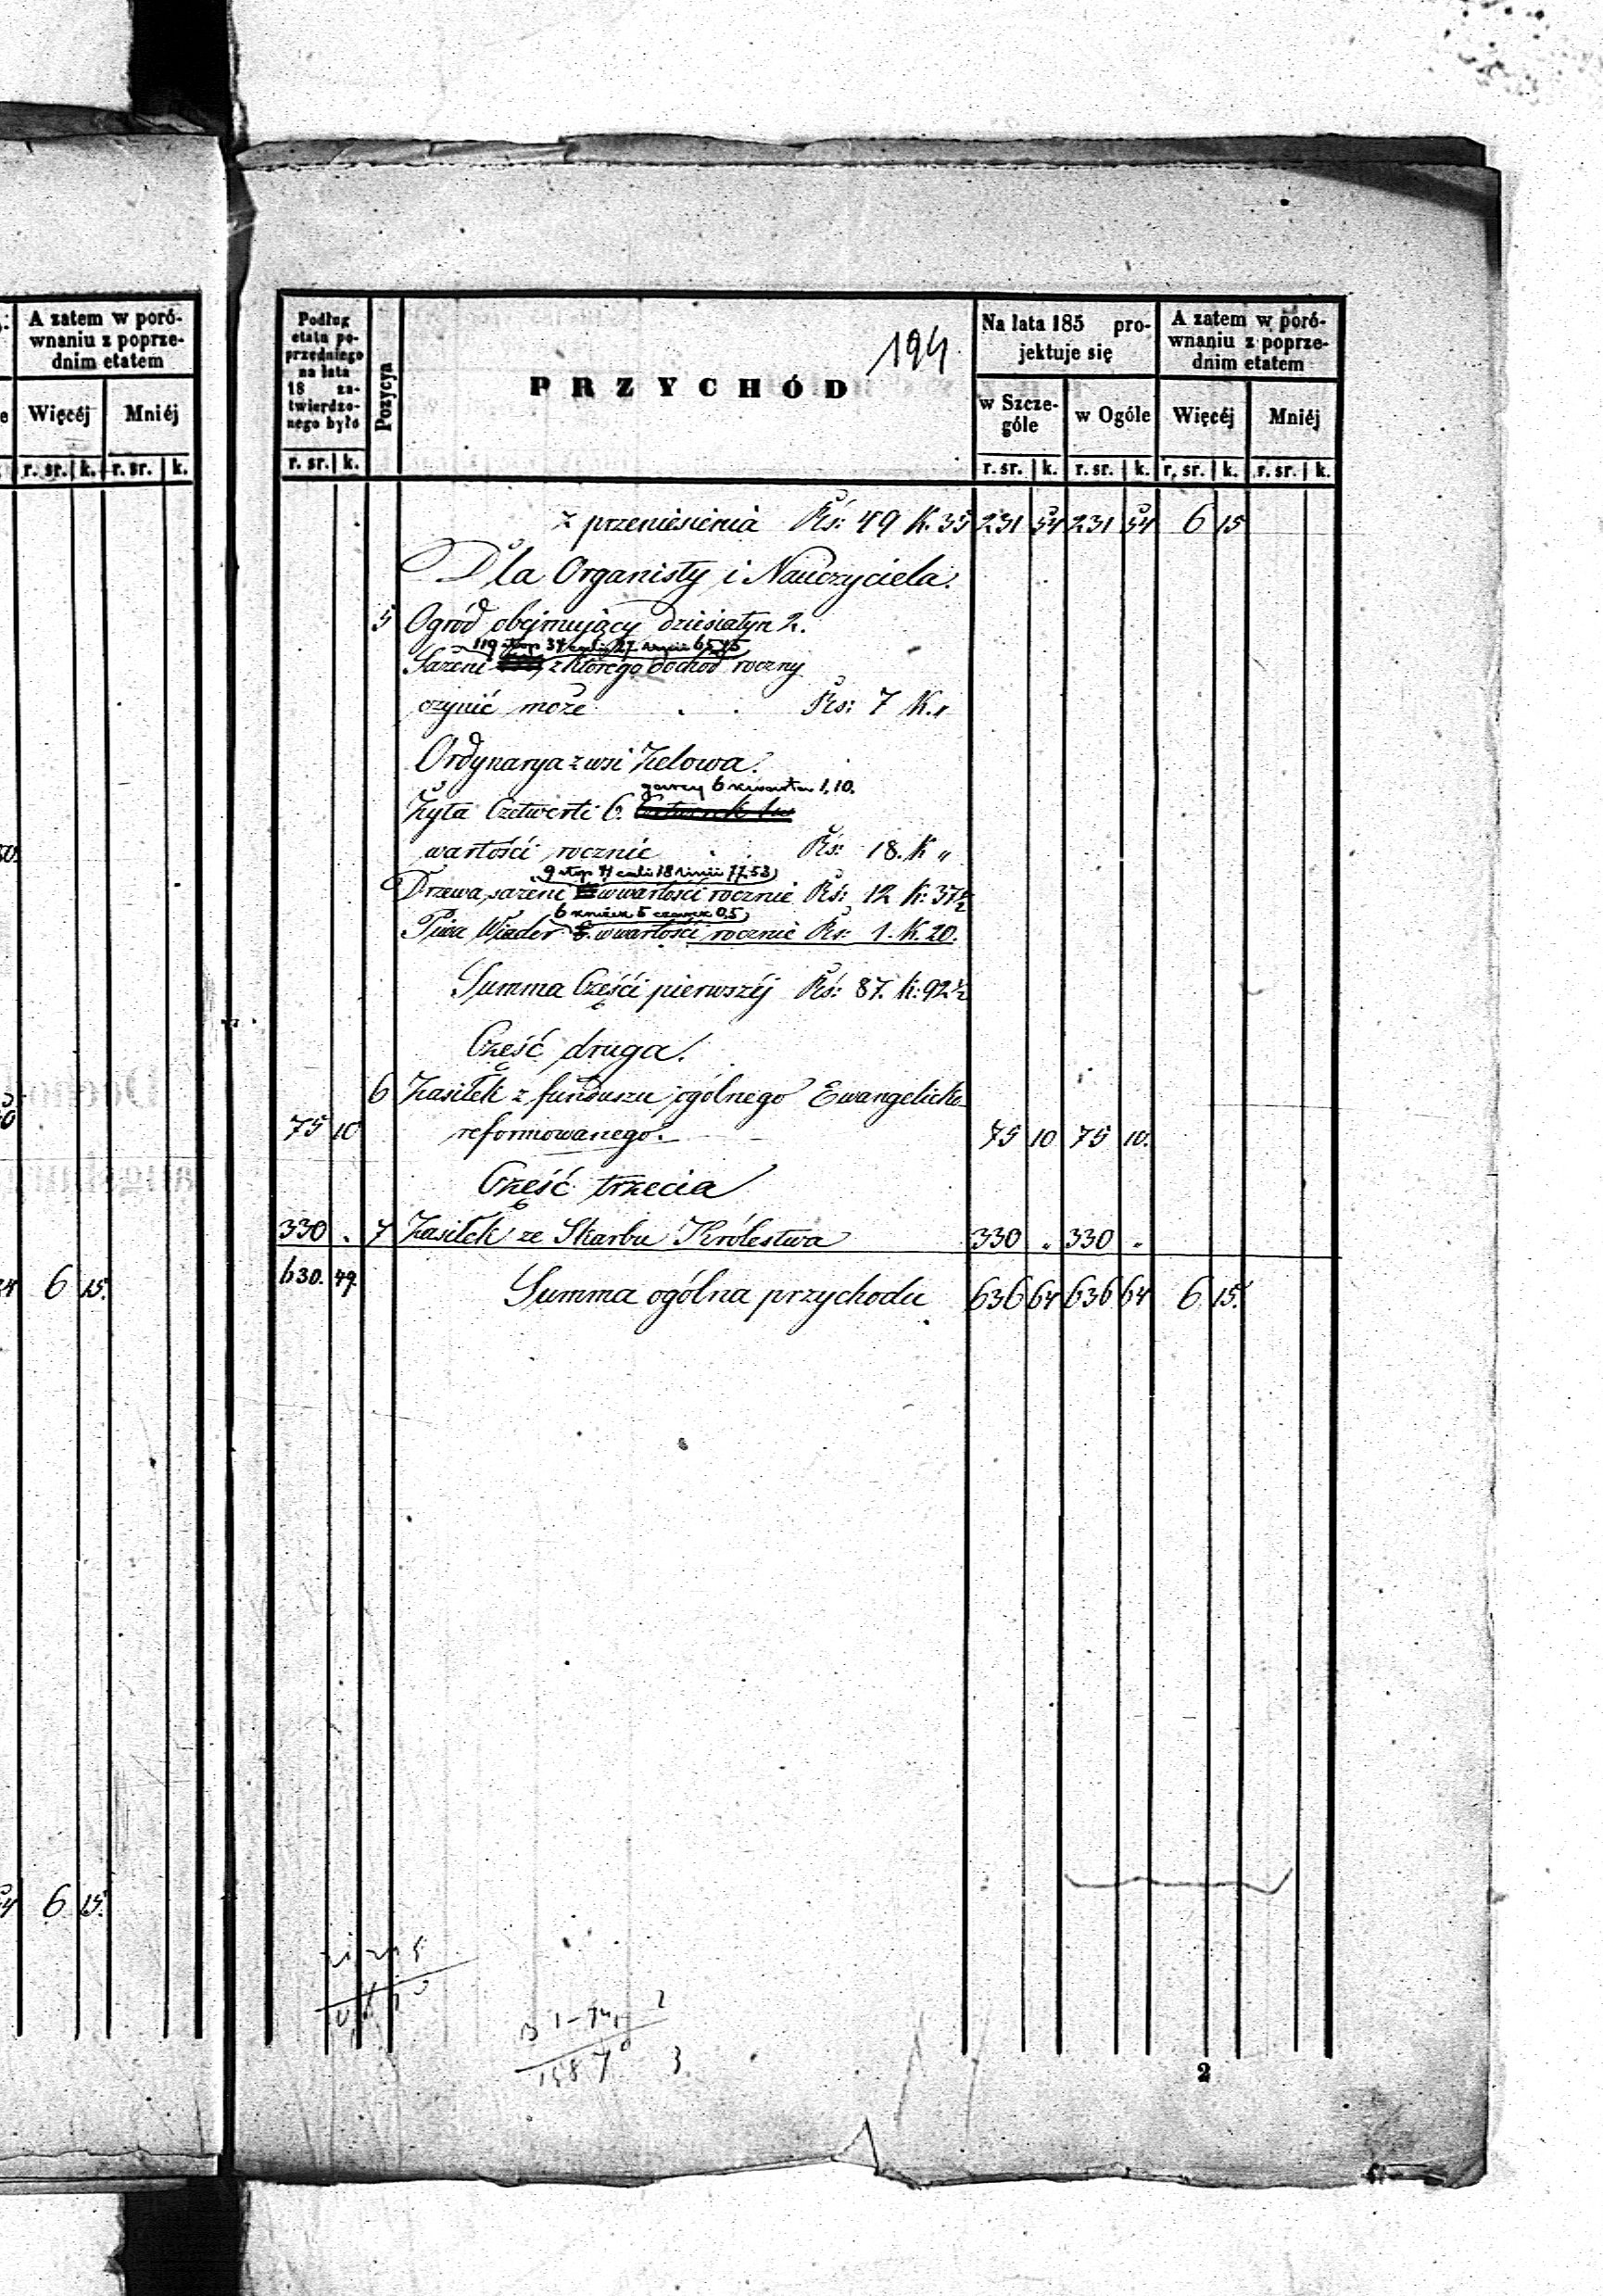 A zatem w poró-
wnaniu z poprze-
dnim etatem
Więcéj Mniéj
r. sr. k. r. sr. k.
6 15.
6 15.
Podług
etatu po-
przedniego
na lata
18 za-
twierdzo-
nego było
r. sr. k.
Pozycya
194.
PRZYCHÓD
Na lata 185 pro-
jektuje się
w Szcze-
góle
w Ogóle
r. sr. k. r. sr. k.
A zatem w poró-
wnaniu z poprze-
dnim etatem
Więcéj Mniéj
r. sr. k. r. sr. k.
z przeniesienia Rs: 49 K. 35 231 54 231 54 6 15
Dla Organisty i Nauczyciela.
5 Ogród obejmujący dziesiatyn 2.
119 stop 34 cali 27 linii 65,45
Sażeni z którego dochód roczny
czynić może . . Rs: 7 K. „
Ordynarya z wsi Zelowa.
garncy 6 kwarta 1,10.
Żyta Czetwerti 6.
wartości rocznie . . Rs: 18. K „
9 stop 41 cali 18 linii 77,53
Drzewa sażeni wwartości rocznie Rs: 12 K: 37½
6 krużek 5 czarek 0,5
Piwa Wiader wwartości rocznie Rs: 1. K. 20.
Summa Części pierwszéj Rs: 87. K: 92½
Część druga.
6 Zasiłek z funduszu ogólnego Ewangelicko
75 10 reformowanego. 75 10 75 10.
Część trzecia
330 „ 7 Zasiłek ze Skarbu Królestwa 330 „ 330 „
630. 49. Summa ogólna przychodu 636 64 636 64 6 15.
2